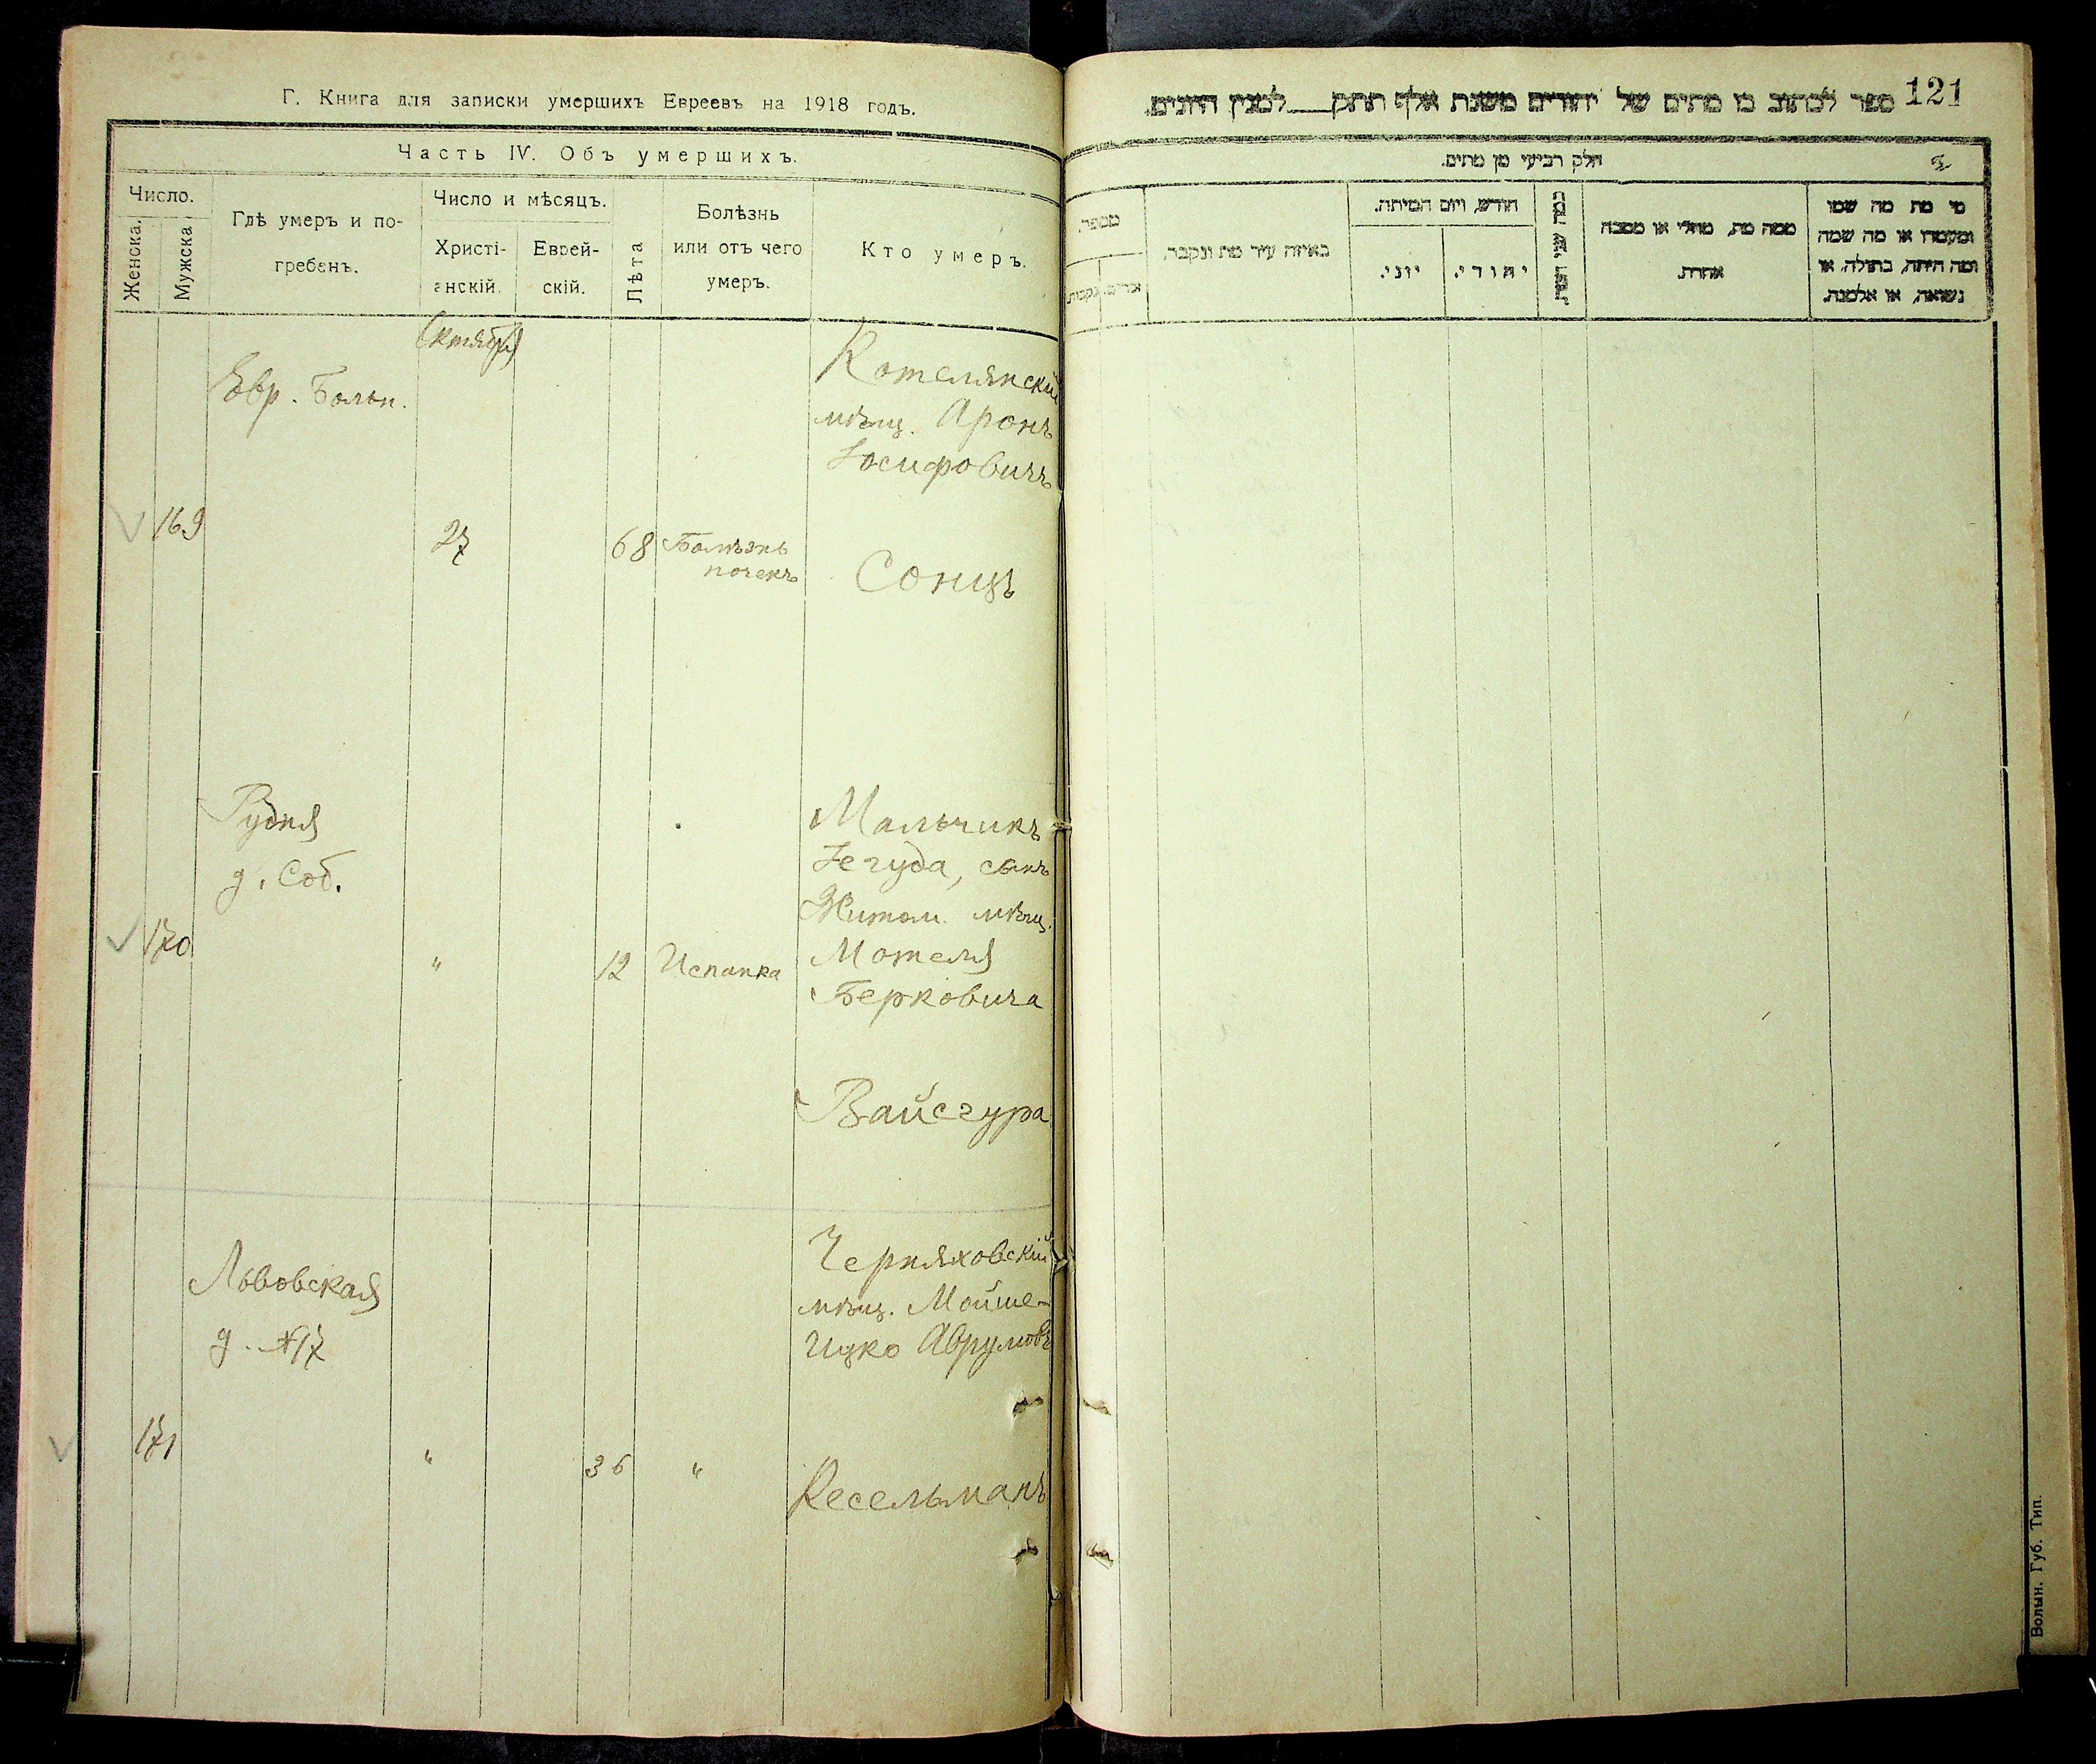 Г. Книга для записки умершихъ Евреевъ на 1918 годъ.
Часть IV. Объ умершихъ.
Число.
Женска.
Мужска
Гдѣ умеръ и по-
гребенъ.
Число и мѣсяцъ.
Христі-
анскій.
Еврей-
скій.
Лѣта
Болѣзнь
или отъ чего
умеръ.
Кто умеръ.
Октября
Евр. Больн.
Котелянскій
мѣщ. Аронъ
Іосифовичъ
169
27
68
Болѣзнь
почекъ
Сонцъ
Рудня
д. Соб.
Мальчикъ
Іегуда, сынъ
Житом. мѣщ.
170
"
12
Испанка
Мотеля
Берковича
Вайсгура
Львовская
д. №17
Черняховскій
мѣщ. Мойше-
Ицко Аврумовъ
171
"
36
"
Кесельманъ
121
ספר לכתוב בו מתים של יהודים משנת אלף תתק___למנין היונים.
חלק רביעי מן מתים.
מספר.
זכרים.
נקבות.
באיזה עיר מת ונקבר.
חודש, ויום המיתה.
יוני.
יהודי.
ממה מת, מחלי או מסבה
אחרת.
מי מת מה שמו
ומעמדו או מה שמה
ומה היתה, בתולה, או
נשואה, או אלמנה.
Волын. Губ. Тип.